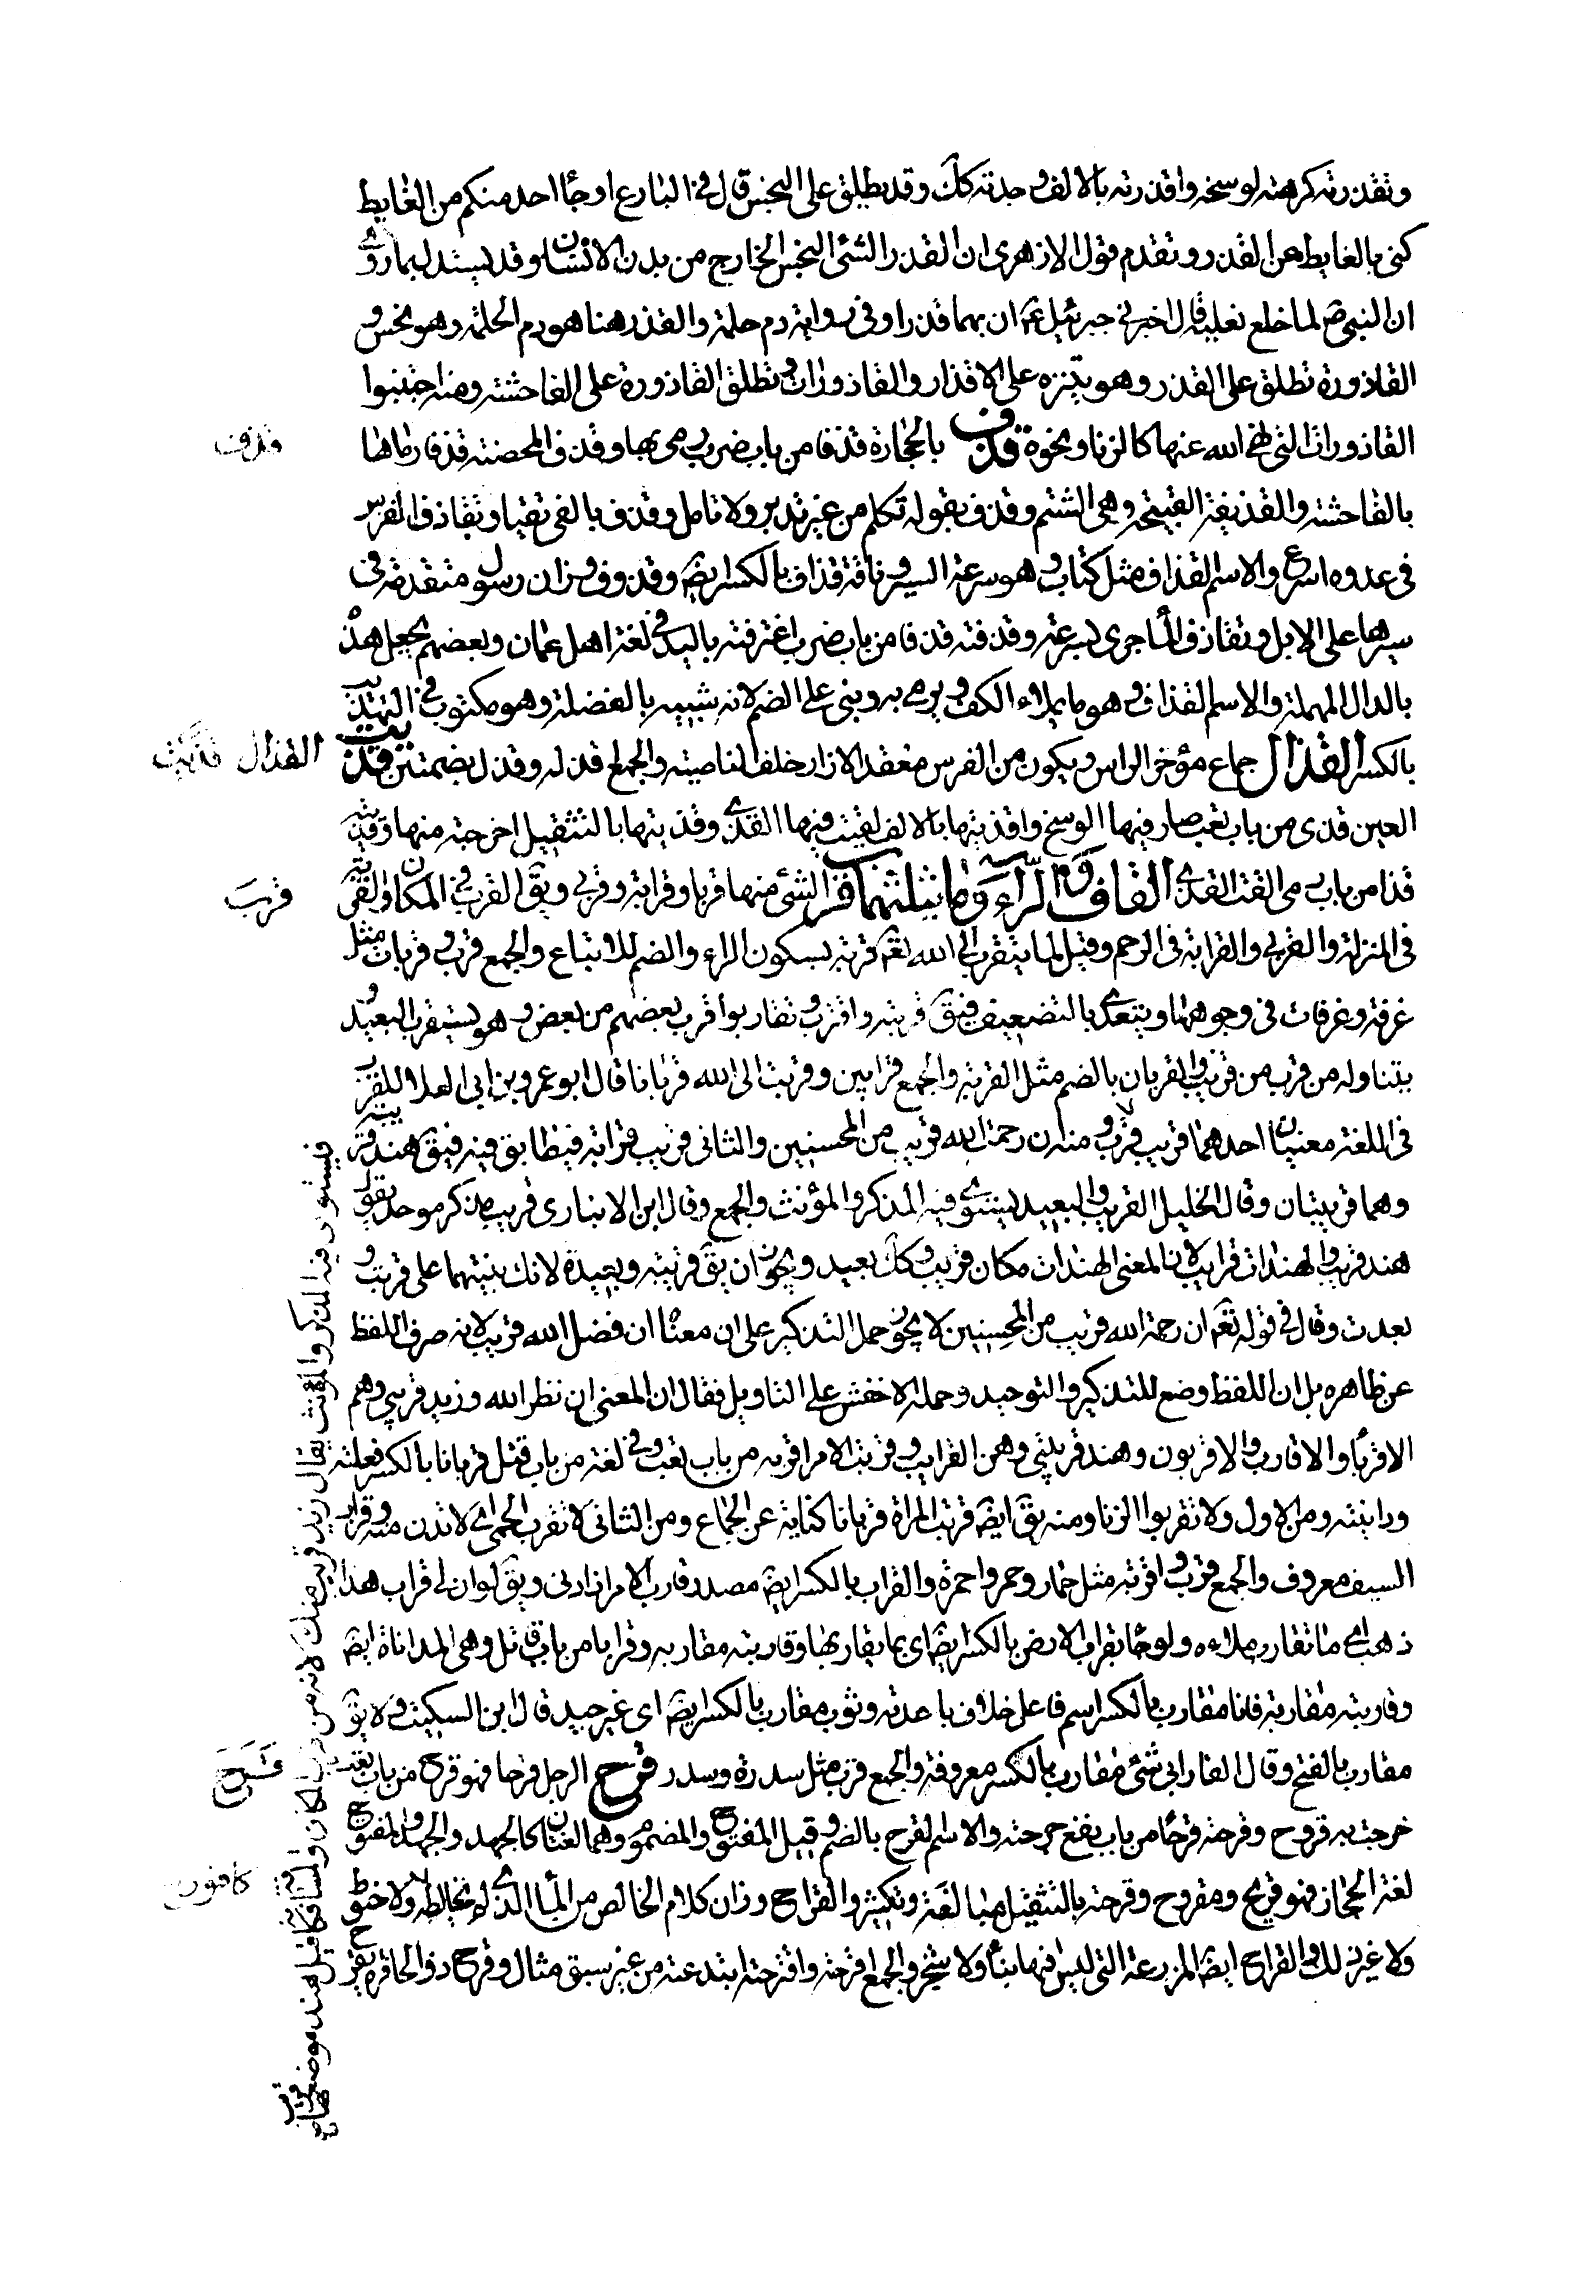 وتقذرته كرهته لوسخه واقذرته بالالف وجدته كك وقد يطلق على النجس قال في البارع اوجاء احد منكم من الغايط
كنى بالغايط عن القذر وتقدم قول الازهرى ان القذر الشئ النجس الخارج من بدن الانسان وقد يستدل بما روى
ان النبى ص لما خلع نعليه قال اخبرني جبرئيل ع ان بهما قذرا وفى رواية دم حلمة والقذر هنا هو دم الحلمة وهو نجس و
القاذورة تطلق على القذر وهو يتنزه على الاقذار والقاذورات وتطلق القاذورة على الفاحشة ومنه اجتنبوا
القاذورات التى نهى الله عنها كالزنا ونحوه قذف بالحجارة قذفا من باب ضرب رمى بها وقذف المحصنة قذفا رماها
بالفاحشة والقذيفة القبيحة وهى الشتم وقذف بقوله تكلم من غير تدبر ولا تامل وقذف بالقى تقيا وتقاذف الفرس
فى عدوه اسرع والاسم القذاف مثل كتاب وهو سرعة السير وناقة قذاف بالكسر ايضا وقذوف وزان رسول متقدمة فى
سيرها على الابل وتقاذف الماء جرى بسرعة وقذفته قذفا من باب ضرب اغترفته باليد فى لغة اهل عمان وبعضهم يجعل هذه
بالدال المهملة والاسم القذاف وهو ما يملاء الكف ويرمى به وبنى على الضم لانه شبيه بالفضلة وهو مكتوب فى التهذيب
بالكسر القذال جماع مؤخر الراس ويكون من الفرس معقد الازار خلف الناصية والجمع اقذلة وقذل بضمتين قذيت
العين قذى من باب تعب صار فيها الوسخ واقذيتها بالالف القيت فيها القذى وقذيتها بالتثقيل اخرجته منها وقذت
قذا من باب رمى القت القذى القاف والراء وما يثلثهما قرب الشئ منها قربا وقرابة وقربى ويق القرب فى المكان والقربة
فى المنزلة والقربى والقرابة فى الرحم وقيل لما يتقرب الى الله تعالى قربة بسكون الراء والضم للاتباع والجمع قرب وقربات مثل
غرفة وغرفات فى وجوهها ويتعدى بالتضعيف فيق قربته واقترب وتقاربوا قرب بعضهم من بعض وهو يستقرب البعيد
يتناوله من قرب من قريب والقربان بالضم مثل القربة والجمع قرابين وقربت الى الله قربانا قال ابو عمرو بن ابى العلا للقريب
فى اللغة معنيان احدهما قريب قرب ومنه ان رحمة الله قريب من المحسنين والثانى قريب قرابة فيطابق فيه فيق هند قريبة
وهما قريبتان وقال الخليل القريب والبعيد يستوى فيه المذكر والمؤنث والجمع وقال ابن الانبارى قريب مذكر موحد يقول
هند قريب والهندات قريب لان المعنى الهندات مكان قريب وكك بعيد ويجوز ان يق قريبة وبعيدة لانك بنيتهما على قربت و
بعدت وقال فى قوله تعالى ان رحمة الله قريب من المحسنين لا يجوز حمل التذكير على ان معناه ان فضل الله قريب لانه صرف اللفظ
عن ظاهره بل ان اللفظ وضع للتذكير والتوحيد وحمله الاخفش على التاويل فقال ان المعنى ان نظر الله وزيد قريبى وهم
الاقرباء والاقارب والاقربون وهند قريبتى وهن القرايب وقربت الامر اقربه من باب تعب وفى لغة من باب قتل قربانا بالكسر فعلته
ودانيته ومن الاول ولا تقربوا الزنا ومنه يق ايضا قربت المراة قربانا كناية عن الجماع ومن الثانى لا تقرب الحمى اى لا تدن منه وقراب
السيف معروف والجمع قرب واقربة مثل حمار وحمر واحمرة والقراب بالكسر ايضا مصدر قارب الامر اذا دنى ويق لو ان لى قراب هذا
ذهبا اى ما تقارب ملاءه ولو جاء بقراب الارض بالكسر ايضا اى بما يقاربها وقاربته مقاربة وقرابا من باب قاتل وهى المداناة ايضا
وقاربته مقاربة فانا مقارب بالكسر اسم فاعل خلاف باعدته وثوب مقارب بالكسر ايضا اى غير جيد قال ابن السكيت ولا يق
مقارب بالفتح وقال الفارابى شئ مقارب بالكسر معروفة والجمع قرب مثل سدرة وسدر قرح الرجل قرحا فهو قرح من باب تعب
خرجت به قروح وقرحته قرحا من باب نفع جرحته والاسم القرح بالضم وقيل المفتوح والمضموم وهما لغتان كالجهد والجهد والمفتوح
لغة الحجاز فهو قريح ومقروح وقرحته بالتثقيل مبالغة وتكثير والقراح وزان كلام الخالص من الماء الذى لم يخالطه كافور ولا حنوط
ولا غير ذلك والقراح ايضا المزرعة التى ليس فيها بناء ولا شجر والجمع اقرحة واقترحته ابتدعته من غير سبق مثال وقرح ذو الحافر يقرح
قذف
القذال قذيت
قرب
قرح
كافور
فيستوى فيه المذكر والمؤنث يقال زيد قريب منك لانه من قرب المكان والمسافة كانه قيل هند موضعها قريب